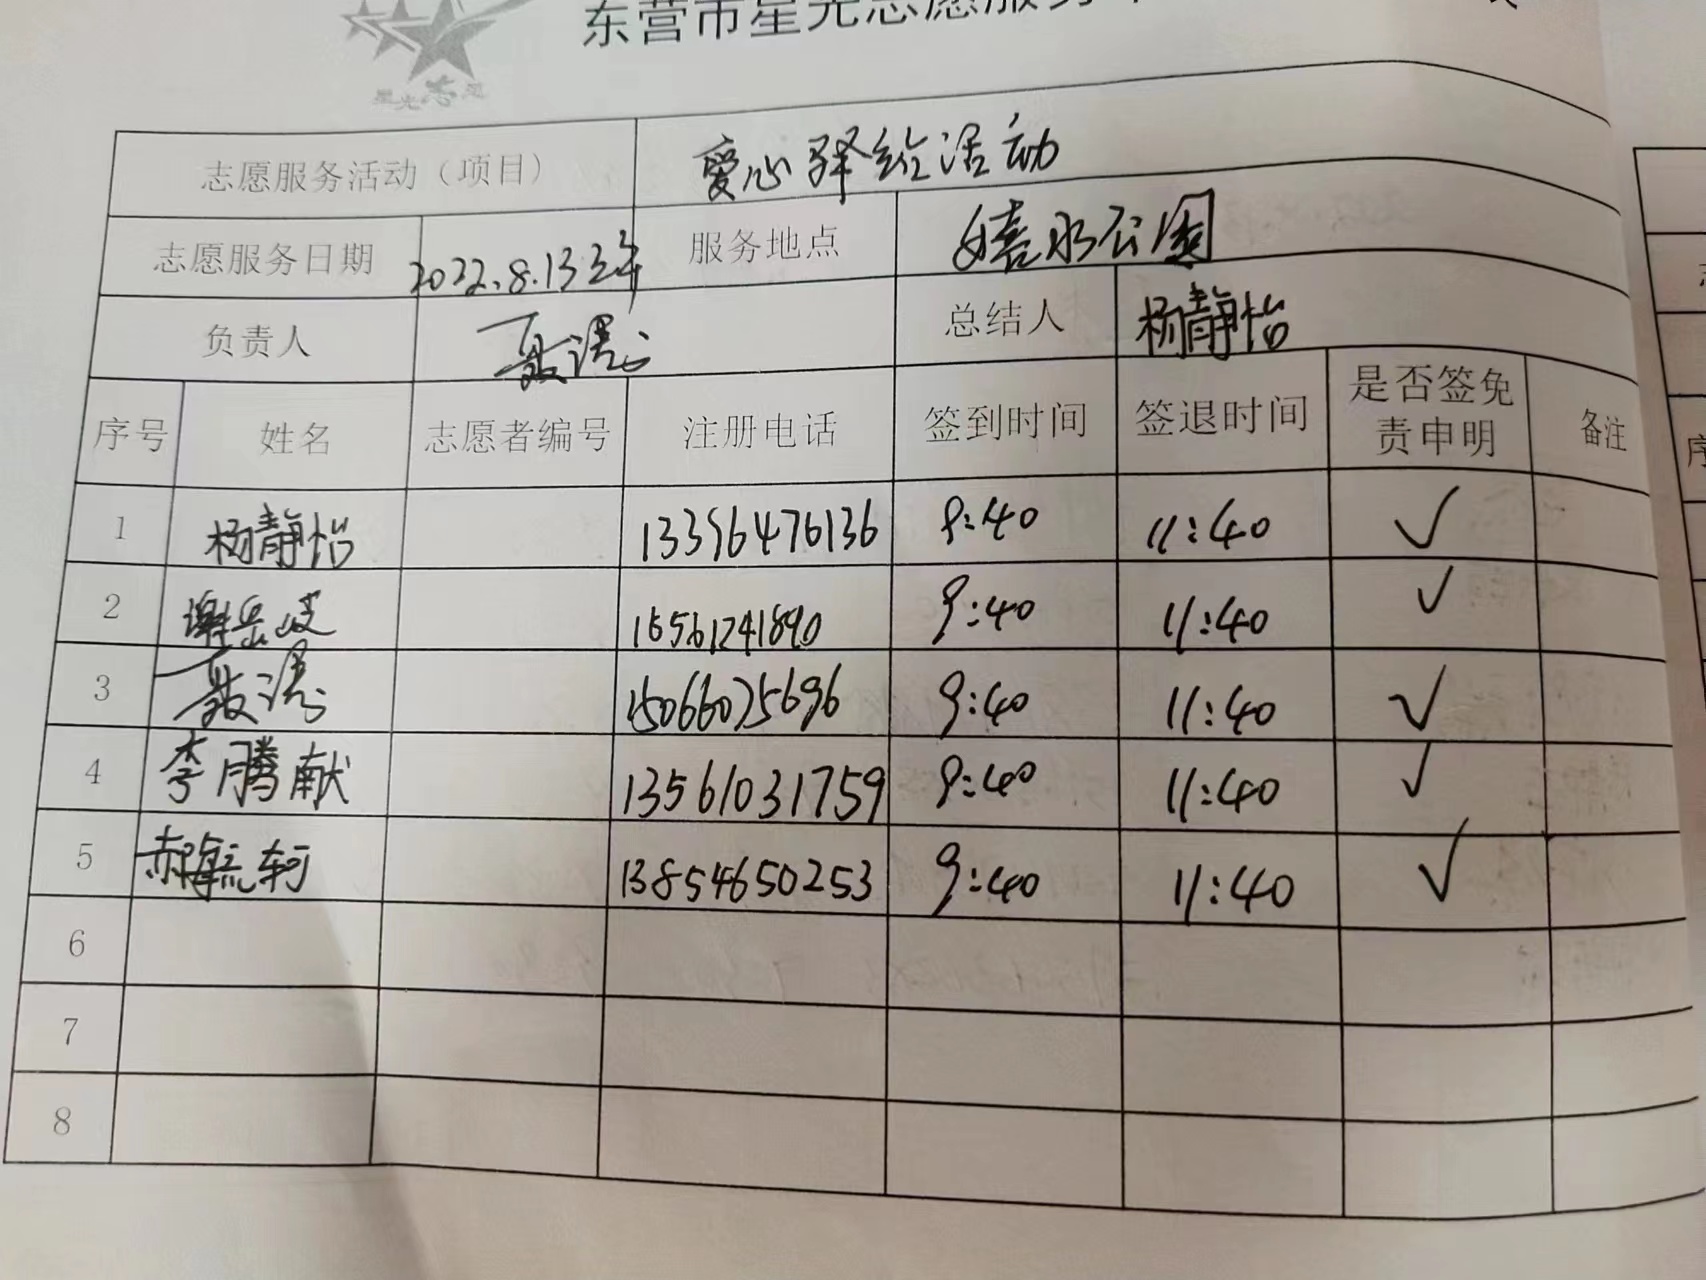 东营市星光志愿服务
星光志愿
志愿服务活动（项目） 爱心驿绘活动
志愿服务日期 2022.8.13上午 服务地点 嬉水公园
负责人 总结人 杨静怡
序号 姓名 志愿者编号 注册电话 签到时间 签退时间 是否签免责申明 备注
1 杨静怡 13396476136 9:40 11:40 ✓
2 谢岳岐 16561241890 9:40 11:40 ✓
3 15066075696 9:40 11:40 ✓
4 李腾献 13561031759 9:40 11:40 ✓
5 郝毓轲 13854650253 9:40 11:40 ✓
6
7
8